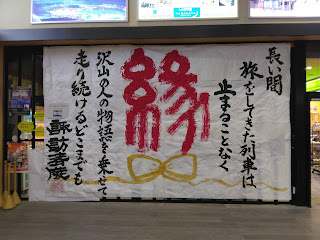 長い間
旅をしてきた列車は
止まることなく
縁
沢山の人の物語を乗せて
走り続けるどこまでも
諏訪実業